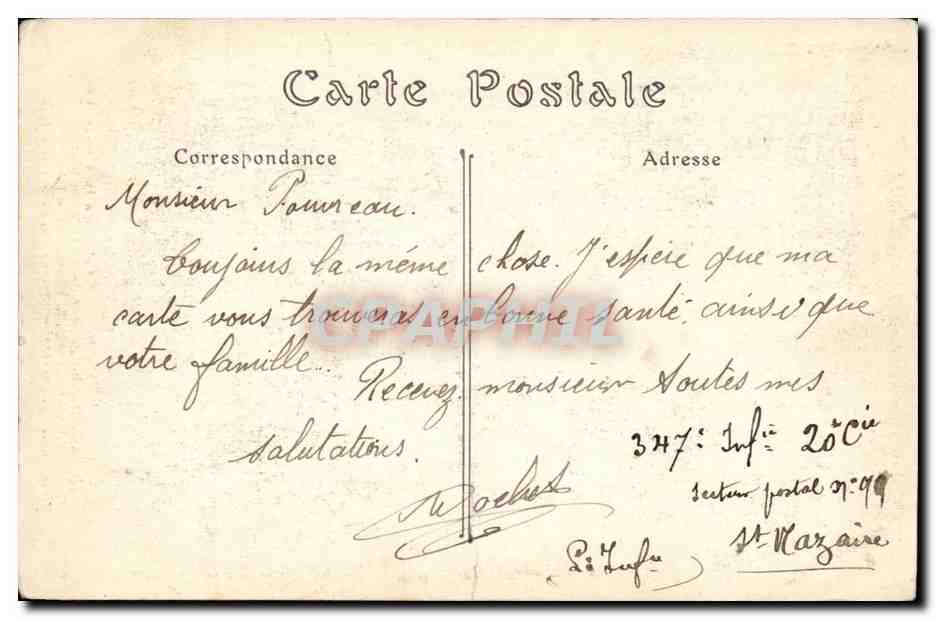 Carte Postale
Correspondance
Adresse
Monsieur Pouvreau.
Toujours la même chose. J'espère que ma
carte vous trouveras en bonne santé, ainsi que
votre famille.
Recevez monsieur toutes mes
salutations.
347e Infie 20e Cie
Secteur postal No 99
St-Nazaire
CPAPHIL